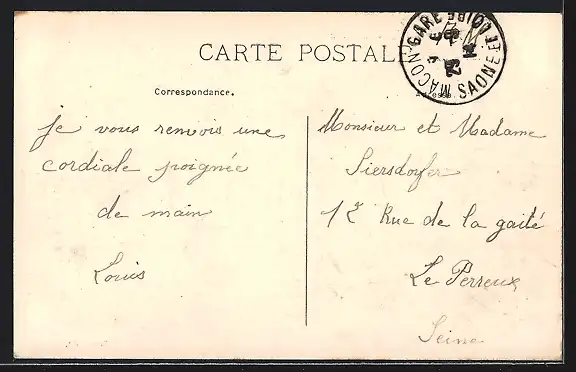 CARTE POSTALE
MACON-GARE
SAONE ET LOIRE
Correspondance.
je vous renvois une
cordiale poignée
de main
Louis
Monsieur et Madame
Siersdorfer
12 Rue de la gaité
Le Perreux
Seine